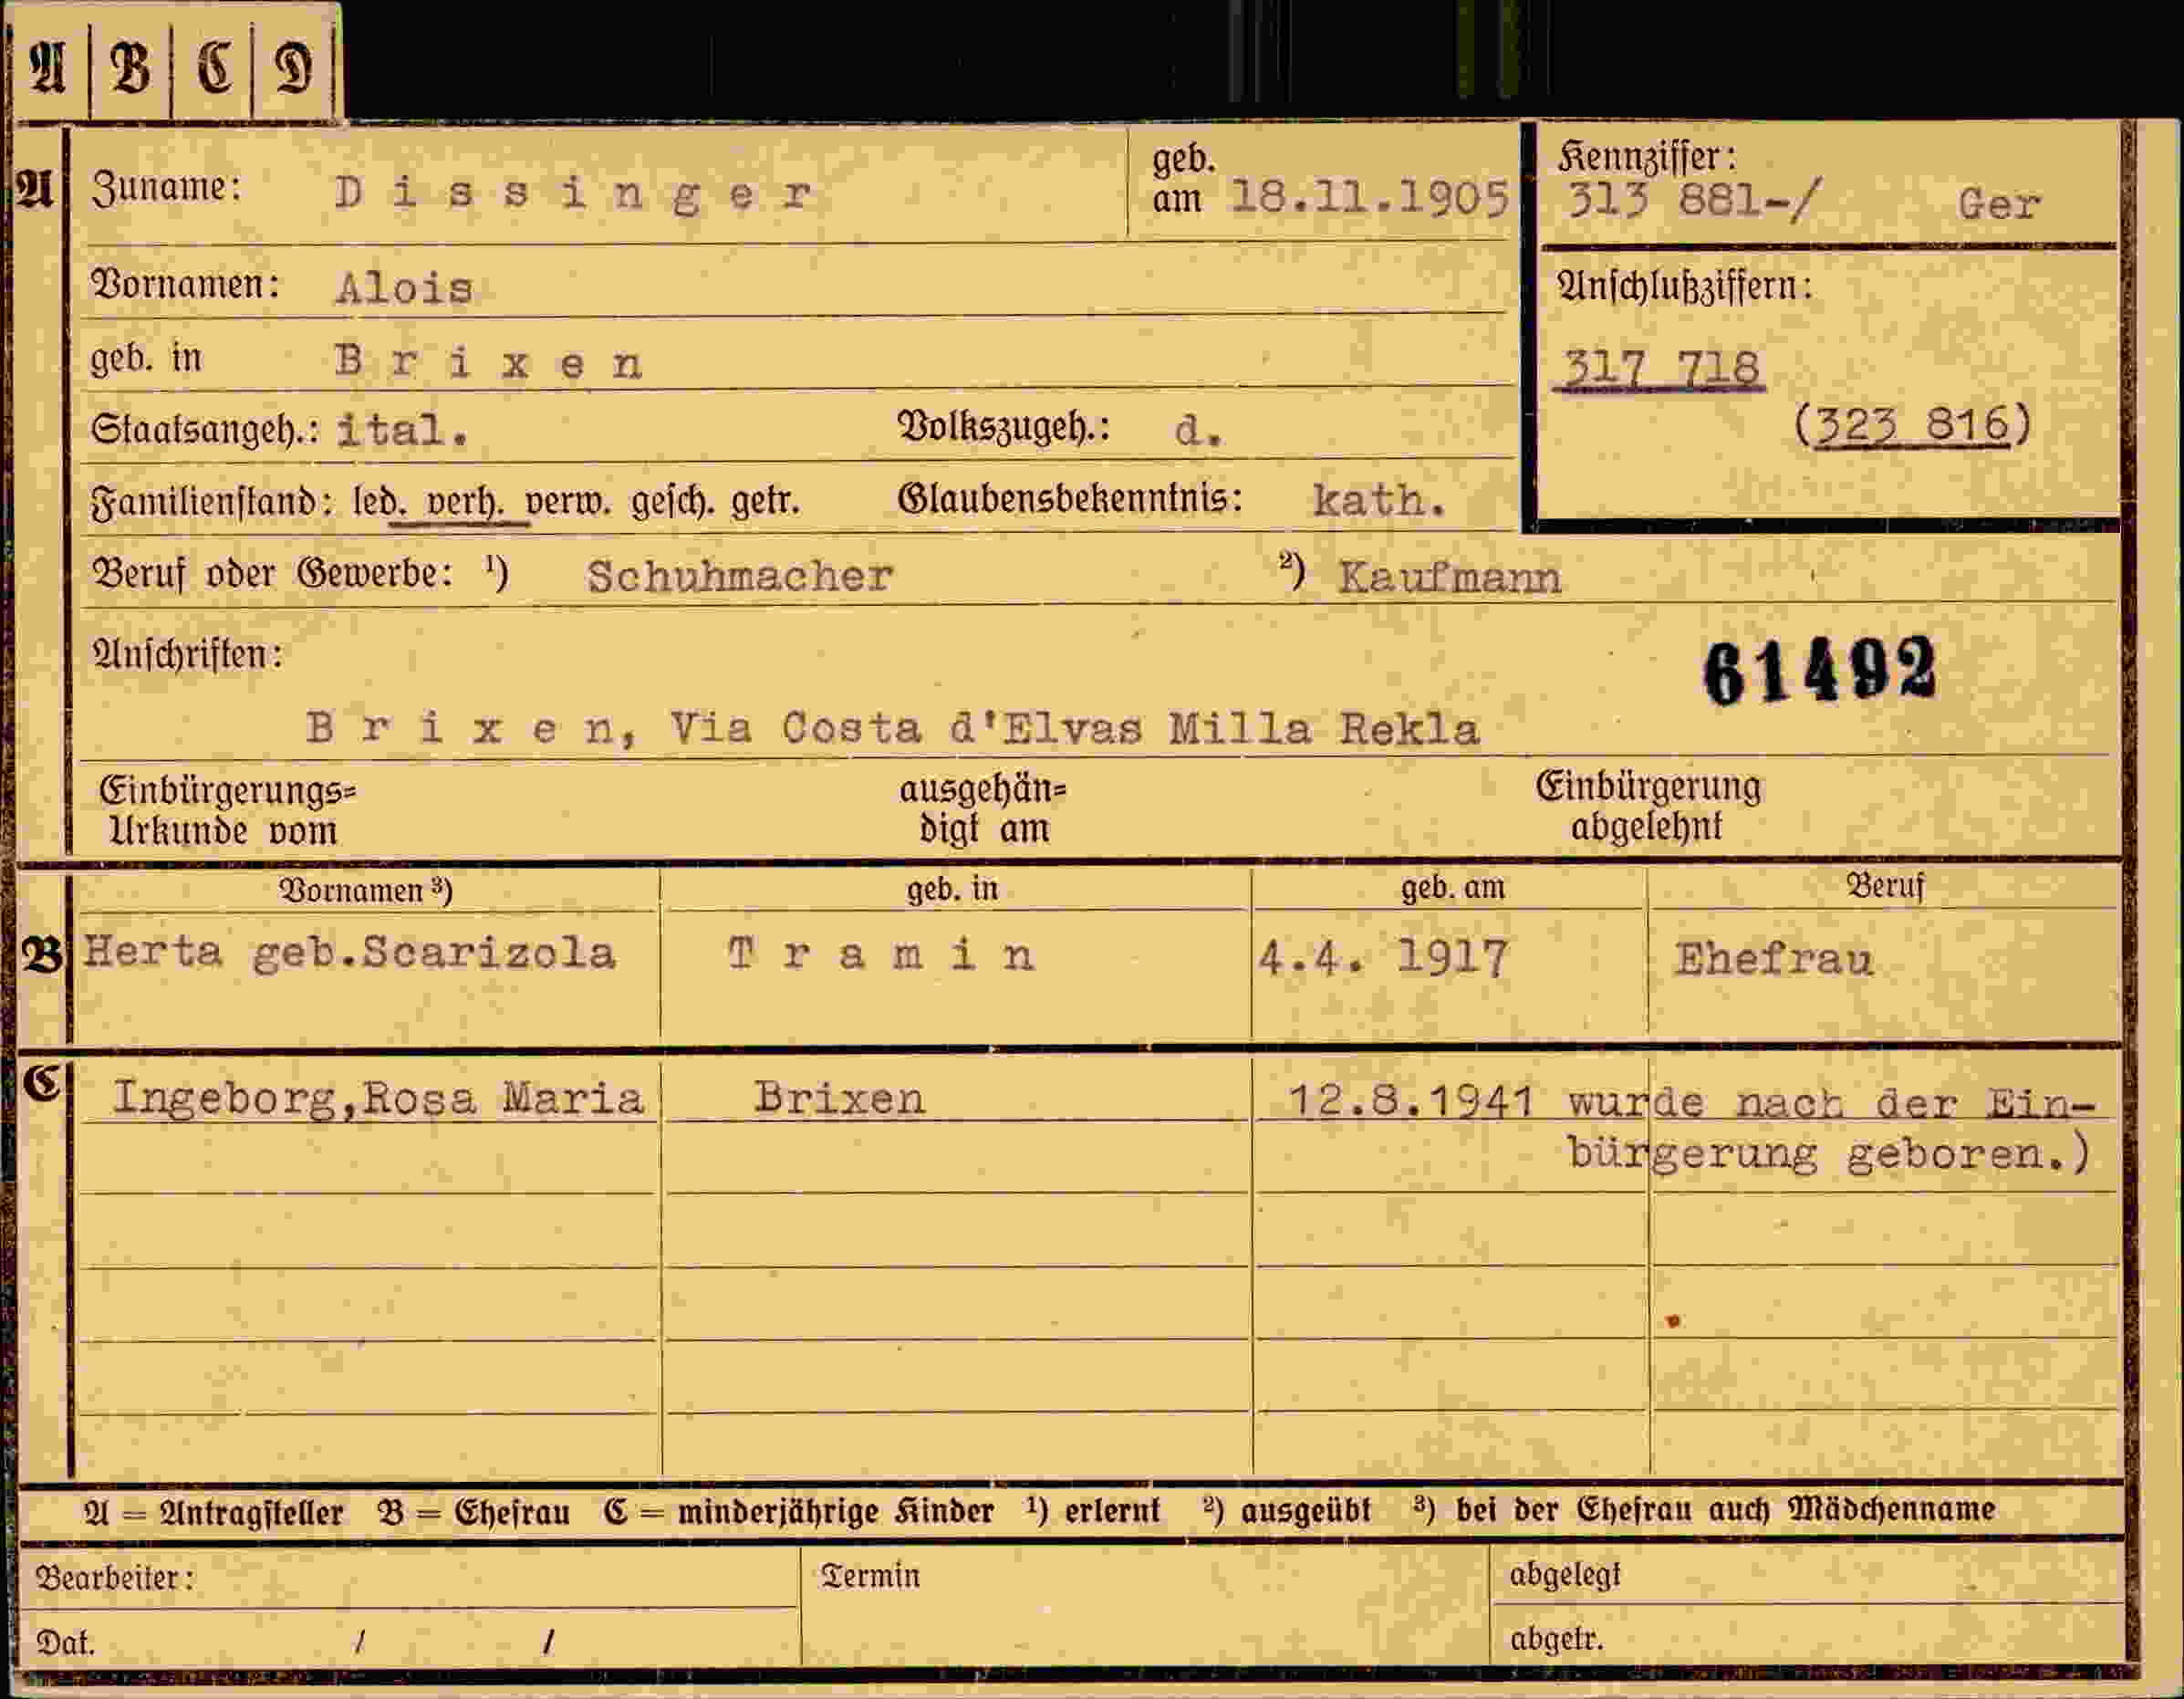 A | B | C | D
A Zuname: Dissinger geb. am 18.11.1905 Kennziffer: 313 881-/ Ger
Vornamen: Alois Anschlußziffern:
geb. in Brixen 317 718
Staatsangeh.: ital. Volkszugeh.: d. (323 816)
Familienstand: led. verh. verw. gesch. getr. Glaubensbekenntnis: kath.
Beruf oder Gewerbe: ¹) Schuhmacher ²) Kaufmann
Anschriften: 61492
Brixen, Via Costa d'Elvas Milla Rekla
Einbürgerungs= ausgehän= Einbürgerung
Urkunde vom digt am abgelehnt
Vornamen ³) geb. in geb. am Beruf
B Herta geb.Scarizola Tramin 4.4. 1917 Ehefrau
C Ingeborg,Rosa Maria Brixen 12.8.1941 wurde nach der Ein-
bürgerung geboren.)
A = Antragsteller B = Ehefrau C = minderjährige Kinder ¹) erlernt ²) ausgeübt ³) bei der Ehefrau auch Mädchenname
Bearbeiter: Termin abgelegt
Dat. / / abgetr.